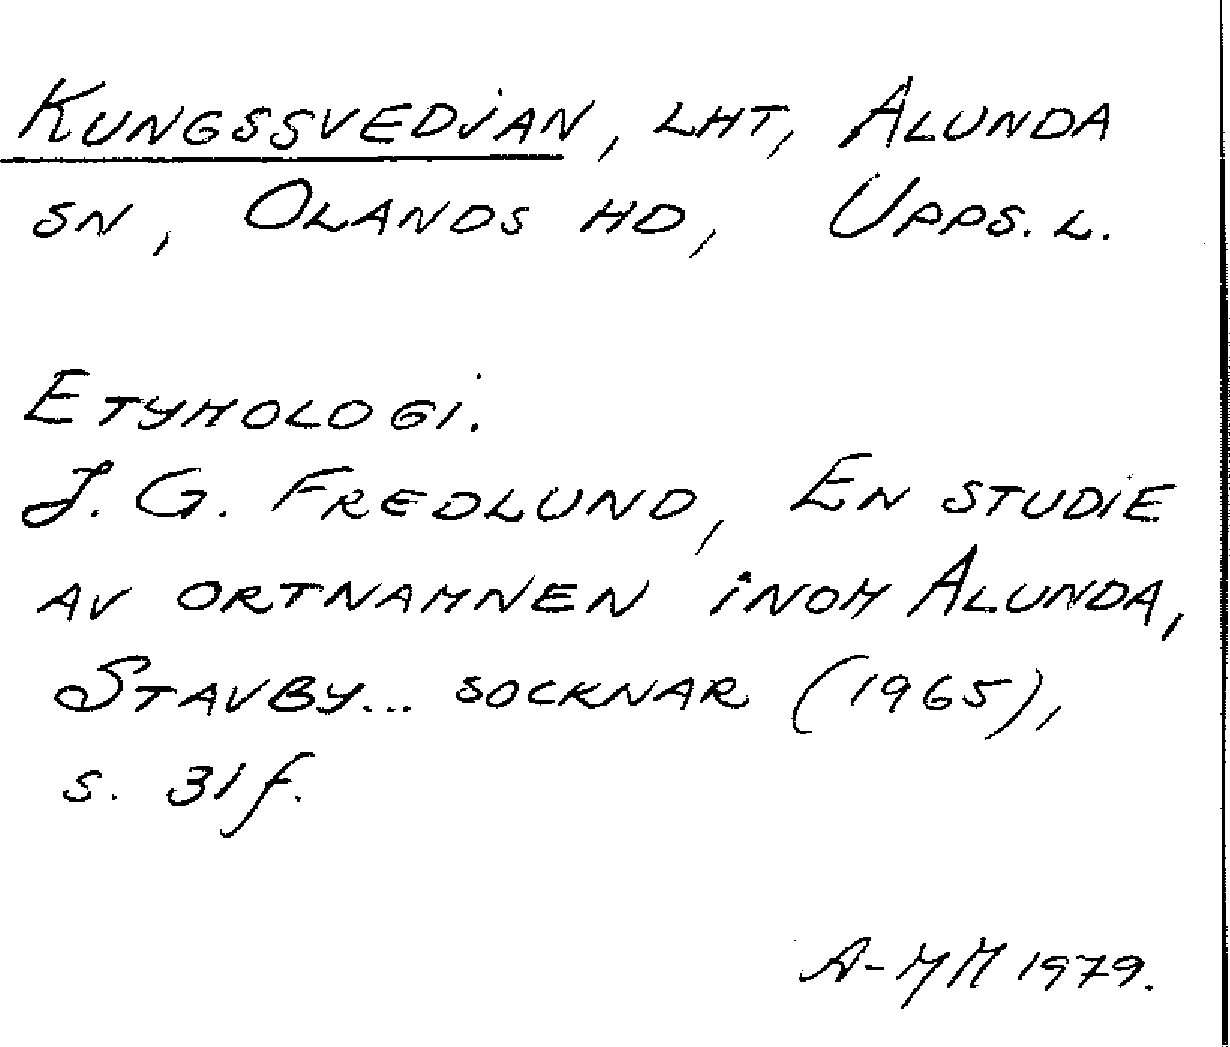 Kungssvedjan, lht, Alunda
sn, Olands hd, Upps. l.
Etymologi.
J. G. Fredlund, En studie
av ortnamnen inom Alunda,
Stavby... socknar (1965),
s. 31 f.
A-MM 1979.